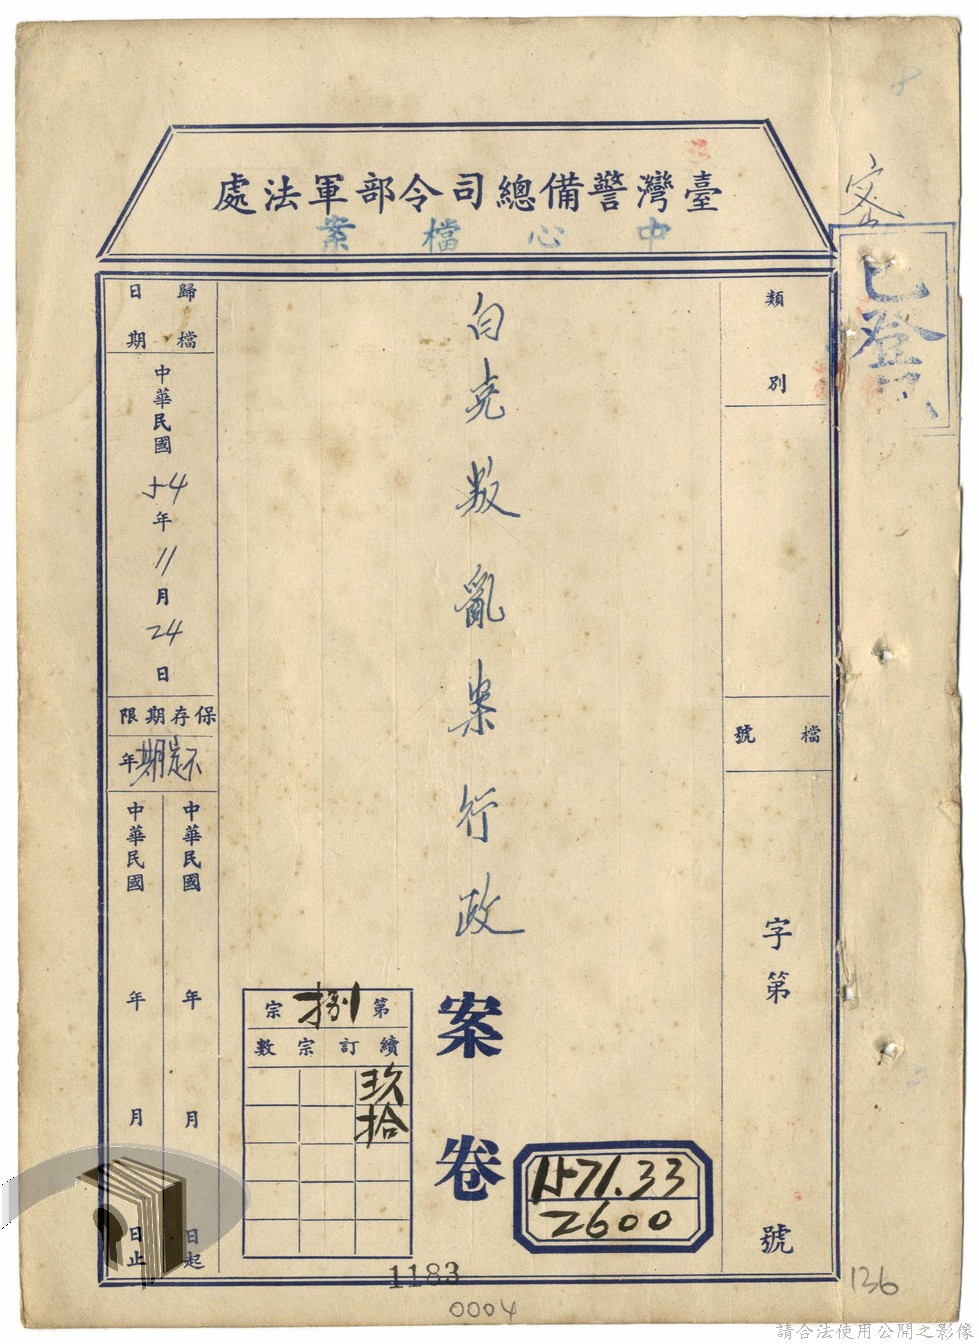 8
密
臺灣警備總司令部軍法處
中心檔案
已登
類別
檔號
字第
號
白克叛亂案行政
案卷
第捌宗
續訂宗數
玖
拾
1571.33
2600
歸檔日期
中華民國54年11月24日
保存期限
不定期年
中華民國 年 月 日起
中華民國 年 月 日止
1183
0004
136
請合法使用公開之影像